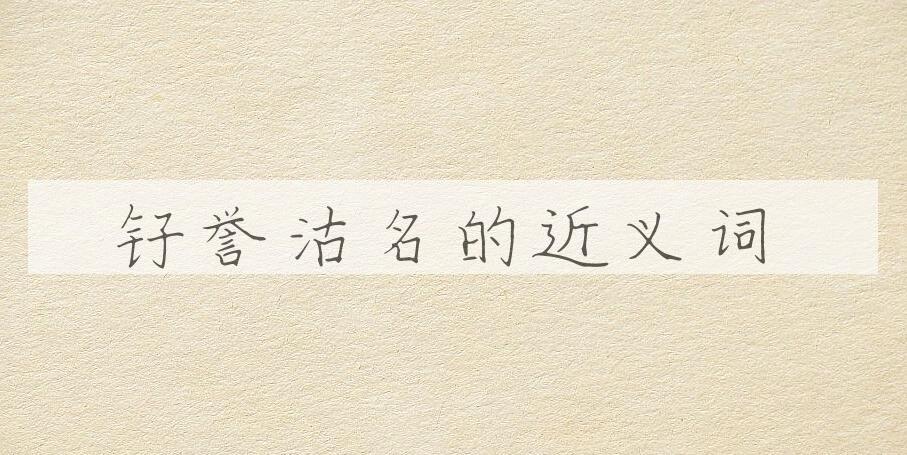 誉沽名的近义词